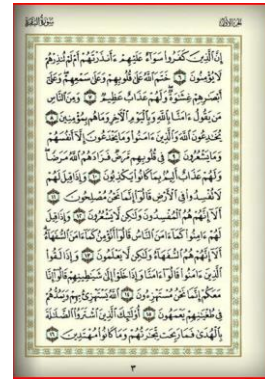 سورة البقرة
الجزء الأول
إِنَّ ٱلَّذِينَ كَفَرُوا۟ سَوَآءٌ عَلَيْهِمْ ءَأَنذَرْتَهُمْ أَمْ لَمْ تُنذِرْهُمْ
لَا يُؤْمِنُونَ ٦ خَتَمَ ٱللَّهُ عَلَىٰ قُلُوبِهِمْ وَعَلَىٰ سَمْعِهِمْ وَعَلَىٰٓ
أَبْصَٰرِهِمْ غِشَٰوَةٌ وَلَهُمْ عَذَابٌ عَظِيمٌ ٧ وَمِنَ ٱلنَّاسِ
مَن يَقُولُ ءَامَنَّا بِٱللَّهِ وَبِٱلْيَوْمِ ٱلْءَاخِرِ وَمَا هُم بِمُؤْمِنِينَ ٨
يُخَٰدِعُونَ ٱللَّهَ وَٱلَّذِينَ ءَامَنُوا۟ وَمَا يَخْدَعُونَ إِلَّآ أَنفُسَهُمْ
وَمَا يَشْعُرُونَ ٩ فِى قُلُوبِهِم مَّرَضٌ فَزَادَهُمُ ٱللَّهُ مَرَضًا
وَلَهُمْ عَذَابٌ أَلِيمٌۢ بِمَا كَانُوا۟ يَكْذِبُونَ ١٠ وَإِذَا قِيلَ لَهُمْ
لَا تُفْسِدُوا۟ فِى ٱلْأَرْضِ قَالُوٓا۟ إِنَّمَا نَحْنُ مُصْلِحُونَ ١١
أَلَآ إِنَّهُمْ هُمُ ٱلْمُفْسِدُونَ وَلَٰكِن لَّا يَشْعُرُونَ ١٢ وَإِذَا قِيلَ
لَهُمْ ءَامِنُوا۟ كَمَآ ءَامَنَ ٱلنَّاسُ قَالُوٓا۟ أَنُؤْمِنُ كَمَآ ءَامَنَ ٱلسُّفَهَآءُ
أَلَآ إِنَّهُمْ هُمُ ٱلسُّفَهَآءُ وَلَٰكِن لَّا يَعْلَمُونَ ١٣ وَإِذَا لَقُوا۟
ٱلَّذِينَ ءَامَنُوا۟ قَالُوٓا۟ ءَامَنَّا وَإِذَا خَلَوْا۟ إِلَىٰ شَيَٰطِينِهِمْ قَالُوٓا۟ إِنَّا
مَعَكُمْ إِنَّمَا نَحْنُ مُسْتَهْزِءُونَ ١٤ ٱللَّهُ يَسْتَهْزِئُ بِهِمْ وَيَمُدُّهُمْ
فِى طُغْيَٰنِهِمْ يَعْمَهُونَ ١٥ أُو۟لَٰٓئِكَ ٱلَّذِينَ ٱشْتَرَوُا۟ ٱلضَّلَٰلَةَ
بِٱلْهُدَىٰ فَمَا رَبِحَت تِّجَٰرَتُهُمْ وَمَا كَانُوا۟ مُهْتَدِينَ ١٦
٣